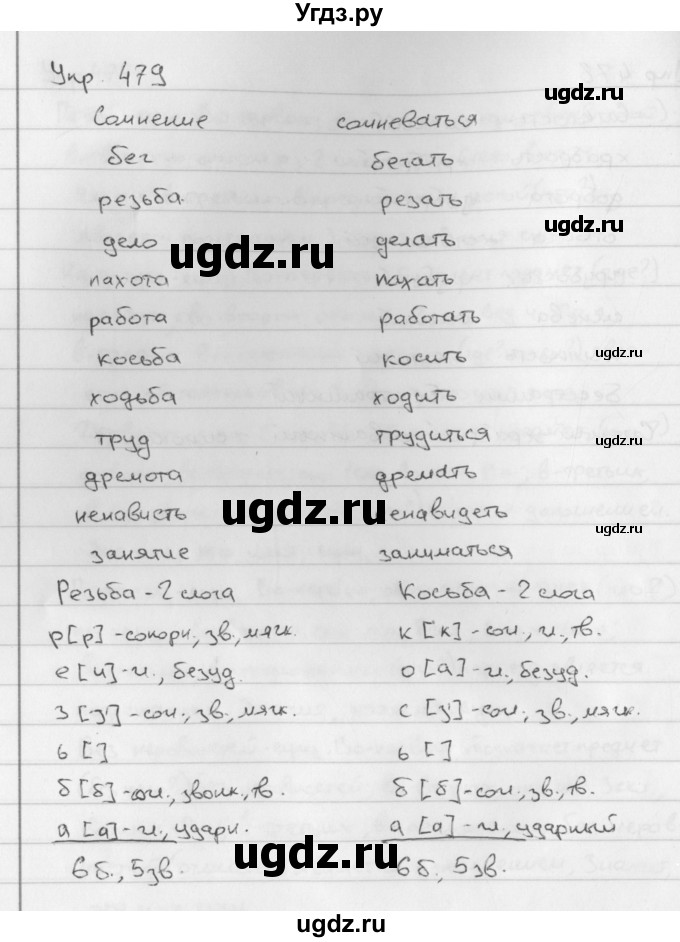 Угдз.ру
Упр. 479
ugdz.ru
Сомнение сомневаться
бег бегать
резьба резать
ugdz.ru
дело делать
ugdz.ru
пахота пахать
работа работать
косьба косить
ugdz.ru
ходьба ходить
труд трудиться
ugdz.ru
дремота дремать
ugdz.ru
ненависть ненавидеть
ugdz.ru
занятие заниматься
Резьба - 2 слога Косьба - 2 слога
р [р] - сонорн., зв., мягк. к [к] - сог., г., тв.
е [и] - г., безуд. о [а] - г., безуд.
ugdz.ru
з [з'] - сог., зв., мягк. с [з] - сог., зв., мягк.
ь [ ] ь [ ]
б [б] - сог., звонк., тв. б [б] - сог., зв., тв.
ugdz.ru
а [а] - г., ударн. а [а] - г., ударный
ugdz.ru
6 б., 5 зв. 6 б., 5 зв.
ugdz.ru